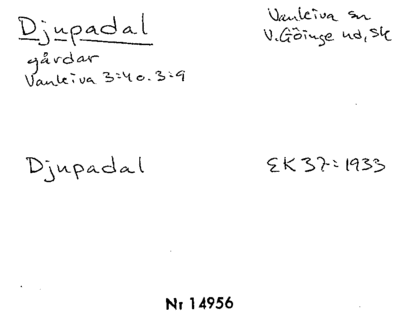 Djupadal
Vankiva sn
V. Göinge hd, Sk
gårdar
Vankiva 3:4 o. 3:9
Djupadal
EK 37: 1933
Nr 14956